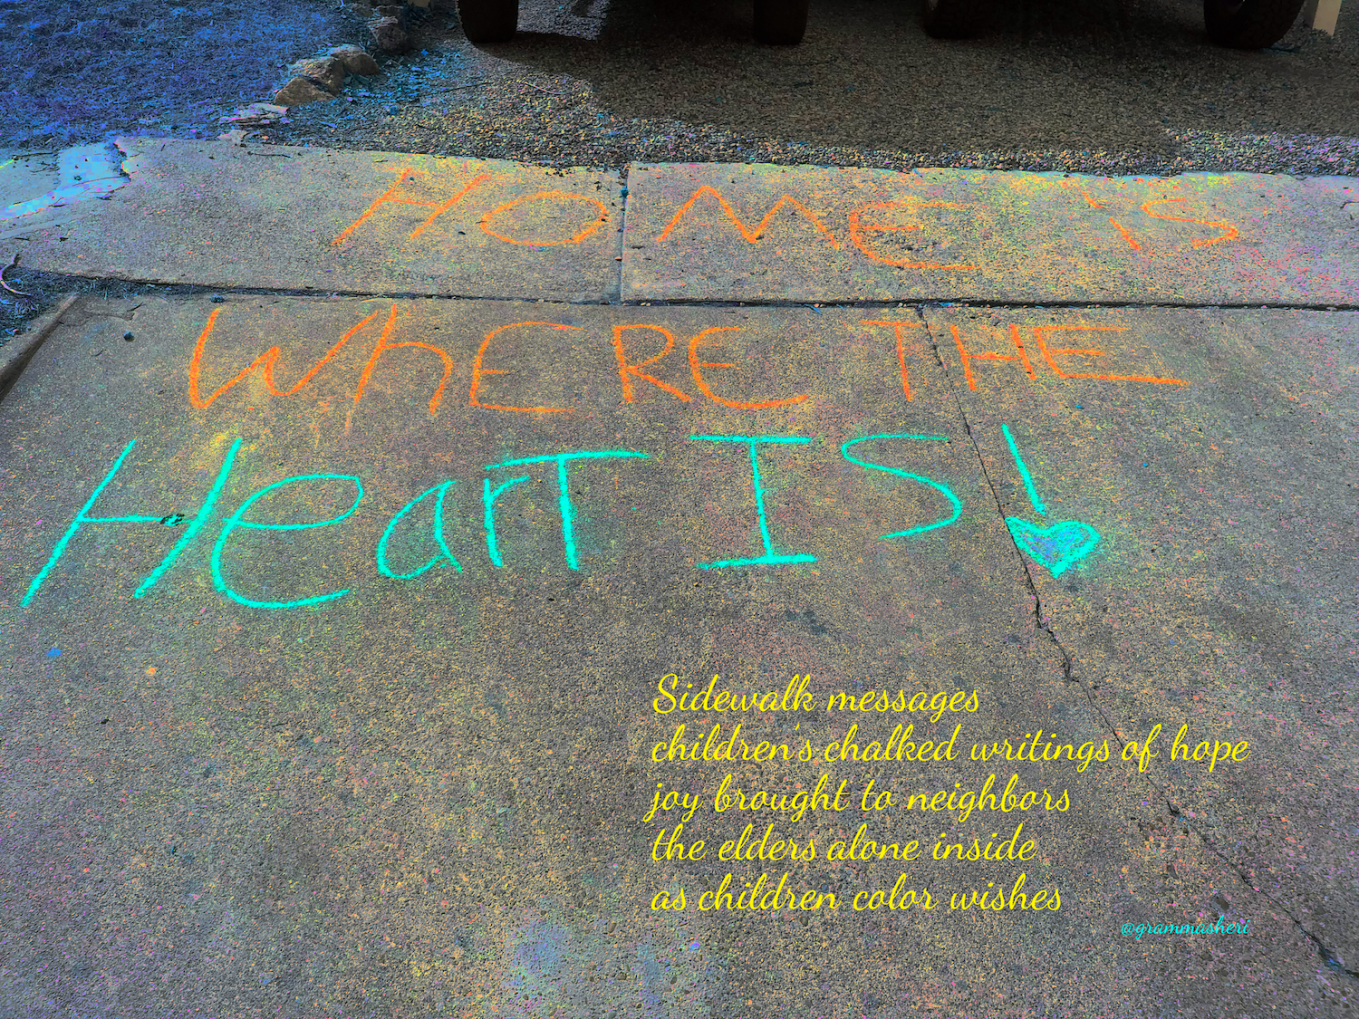 HOME iS
WhERE THE
HearT IS!
Sidewalk messages
children's chalked writings of hope
joy brought to neighbors
the elders alone inside
as children color wishes
@grammasheri